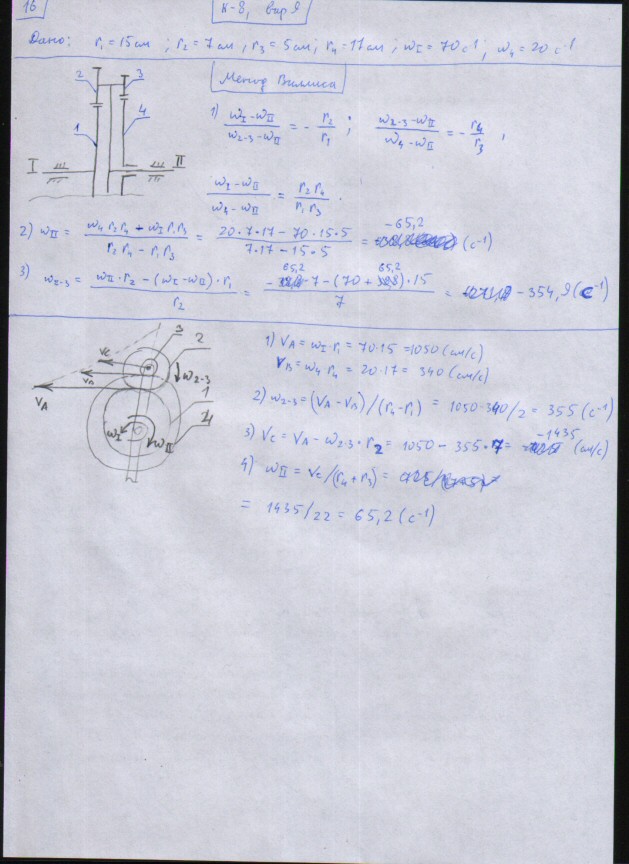 16
К-8, вар 9
Дано: r₁ = 15 см; r₂ = 7 см, r₃ = 5 см; r₄ = 17 см; ωI = 70 с⁻¹; ω₄ = 20 с⁻¹
Метод Виллиса
2 3
4
1
I II
1) (ωI - ωII)/(ω2-3 - ωII) = - r₂/r₁; (ω2-3 - ωII)/(ω₄ - ωII) = - r₄/r₃,
(ωI - ωII)/(ω₄ - ωII) = r₂r₄/r₁r₃.
2) ωII = (ω₄r₂r₄ - ωI r₁r₃)/(r₂r₄ - r₁r₃) = (20·7·17 - 70·15·5)/(7·17 - 15·5) = -65,2 (с⁻¹)
3) ω2-3 = (ωII·r₂ - (ωI - ωII)·r₁)/r₂ = (-65,2·7 - (70 + 65,2)·15)/7 = -354,9 (с⁻¹)
3
2
1
4
VC
VB
VA
ω2-3
ωI
ωII
1) VA = ωI·r₁ = 70·15 = 1050 (см/с)
VB = ω₄ r₄ = 20·17 = 340 (см/с)
2) ω2-3 = (VA - VB)/(r₄ - r₁) = 1050-340/2 = 355 (с⁻¹)
3) VC = VA - ω2-3·r₂ = 1050 - 355·7 = -1435 (см/с)
4) ωII = VC/(r₄ + r₃) =
= 1435/22 = 65,2 (с⁻¹)